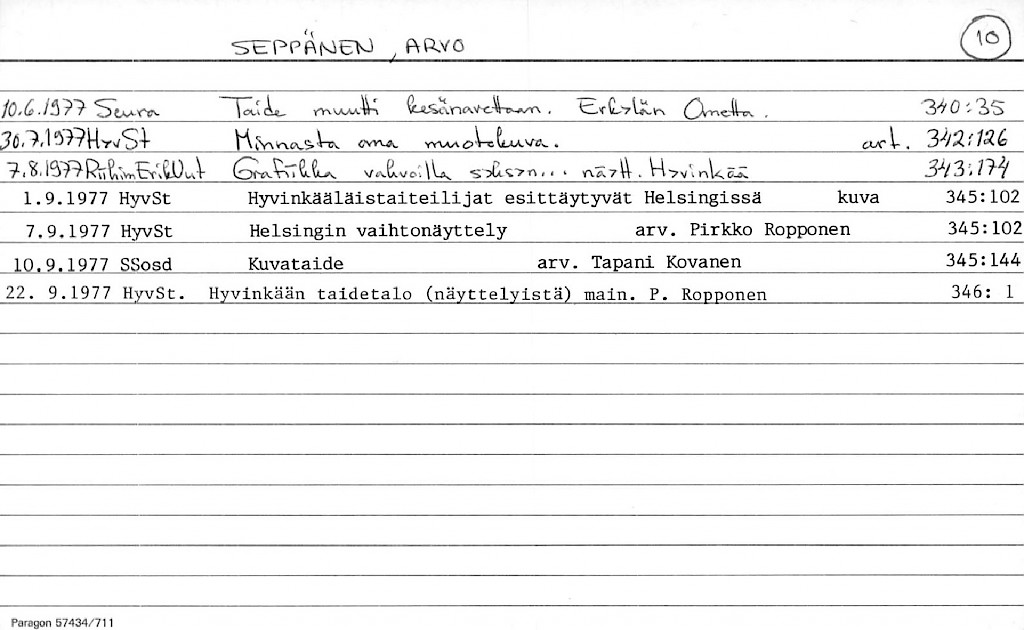 SEPPÄNEN, ARVO 10
10.6.1977 Seura Taide muutti kesänavettaan. Erkylän Ometta. 340:35
30.7.1977 HyvSt Minnasta oma muotokuva. art. 342:126
7.8.1977 RiihimErikUut Grafiikka vahvoilla syksyn... näytt. Hyvinkää 343:174
1.9.1977 HyvSt Hyvinkääläistaiteilijat esittäytyvät Helsingissä kuva 345:102
7.9.1977 HyvSt Helsingin vaihtonäyttely arv. Pirkko Ropponen 345:102
10.9.1977 SSosd Kuvataide arv. Tapani Kovanen 345:144
22. 9.1977 HyvSt. Hyvinkään taidetalo (näyttelyistä) main. P. Ropponen 346: 1
Paragon 57434/711